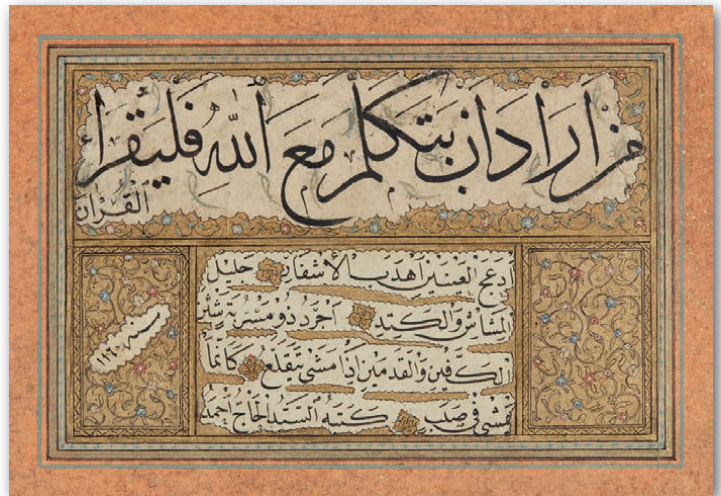 من اراد ان يتكلم مع الله فليقرأ
القرآن
أدعج العينين أهدب الأشفار جليل
المشاش والكتد أجرد ذو مسربة شثن
الكفين والقدمين إذا مشى تقلع كأنما
يمشي في صبب كتبه السيد الحاج أحمد
سنه